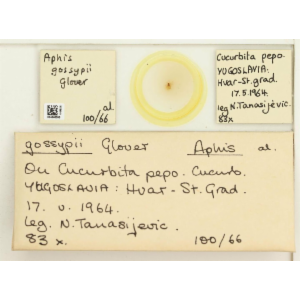 Aphis
gossypii
Glover
al.
100/66
Cucurbita pepo.
YUGOSLAVIA:
Hvar-St.grad.
17.5.1964.
leg N.Tanasijević.
83x
gossypii Glover Aphis al.
On Cucurbita pepo. Cucurb.
YUGOSLAVIA: Hvar-St.Grad.
17. v. 1964.
Leg. N.Tanasijevic.
83 x. 100/66